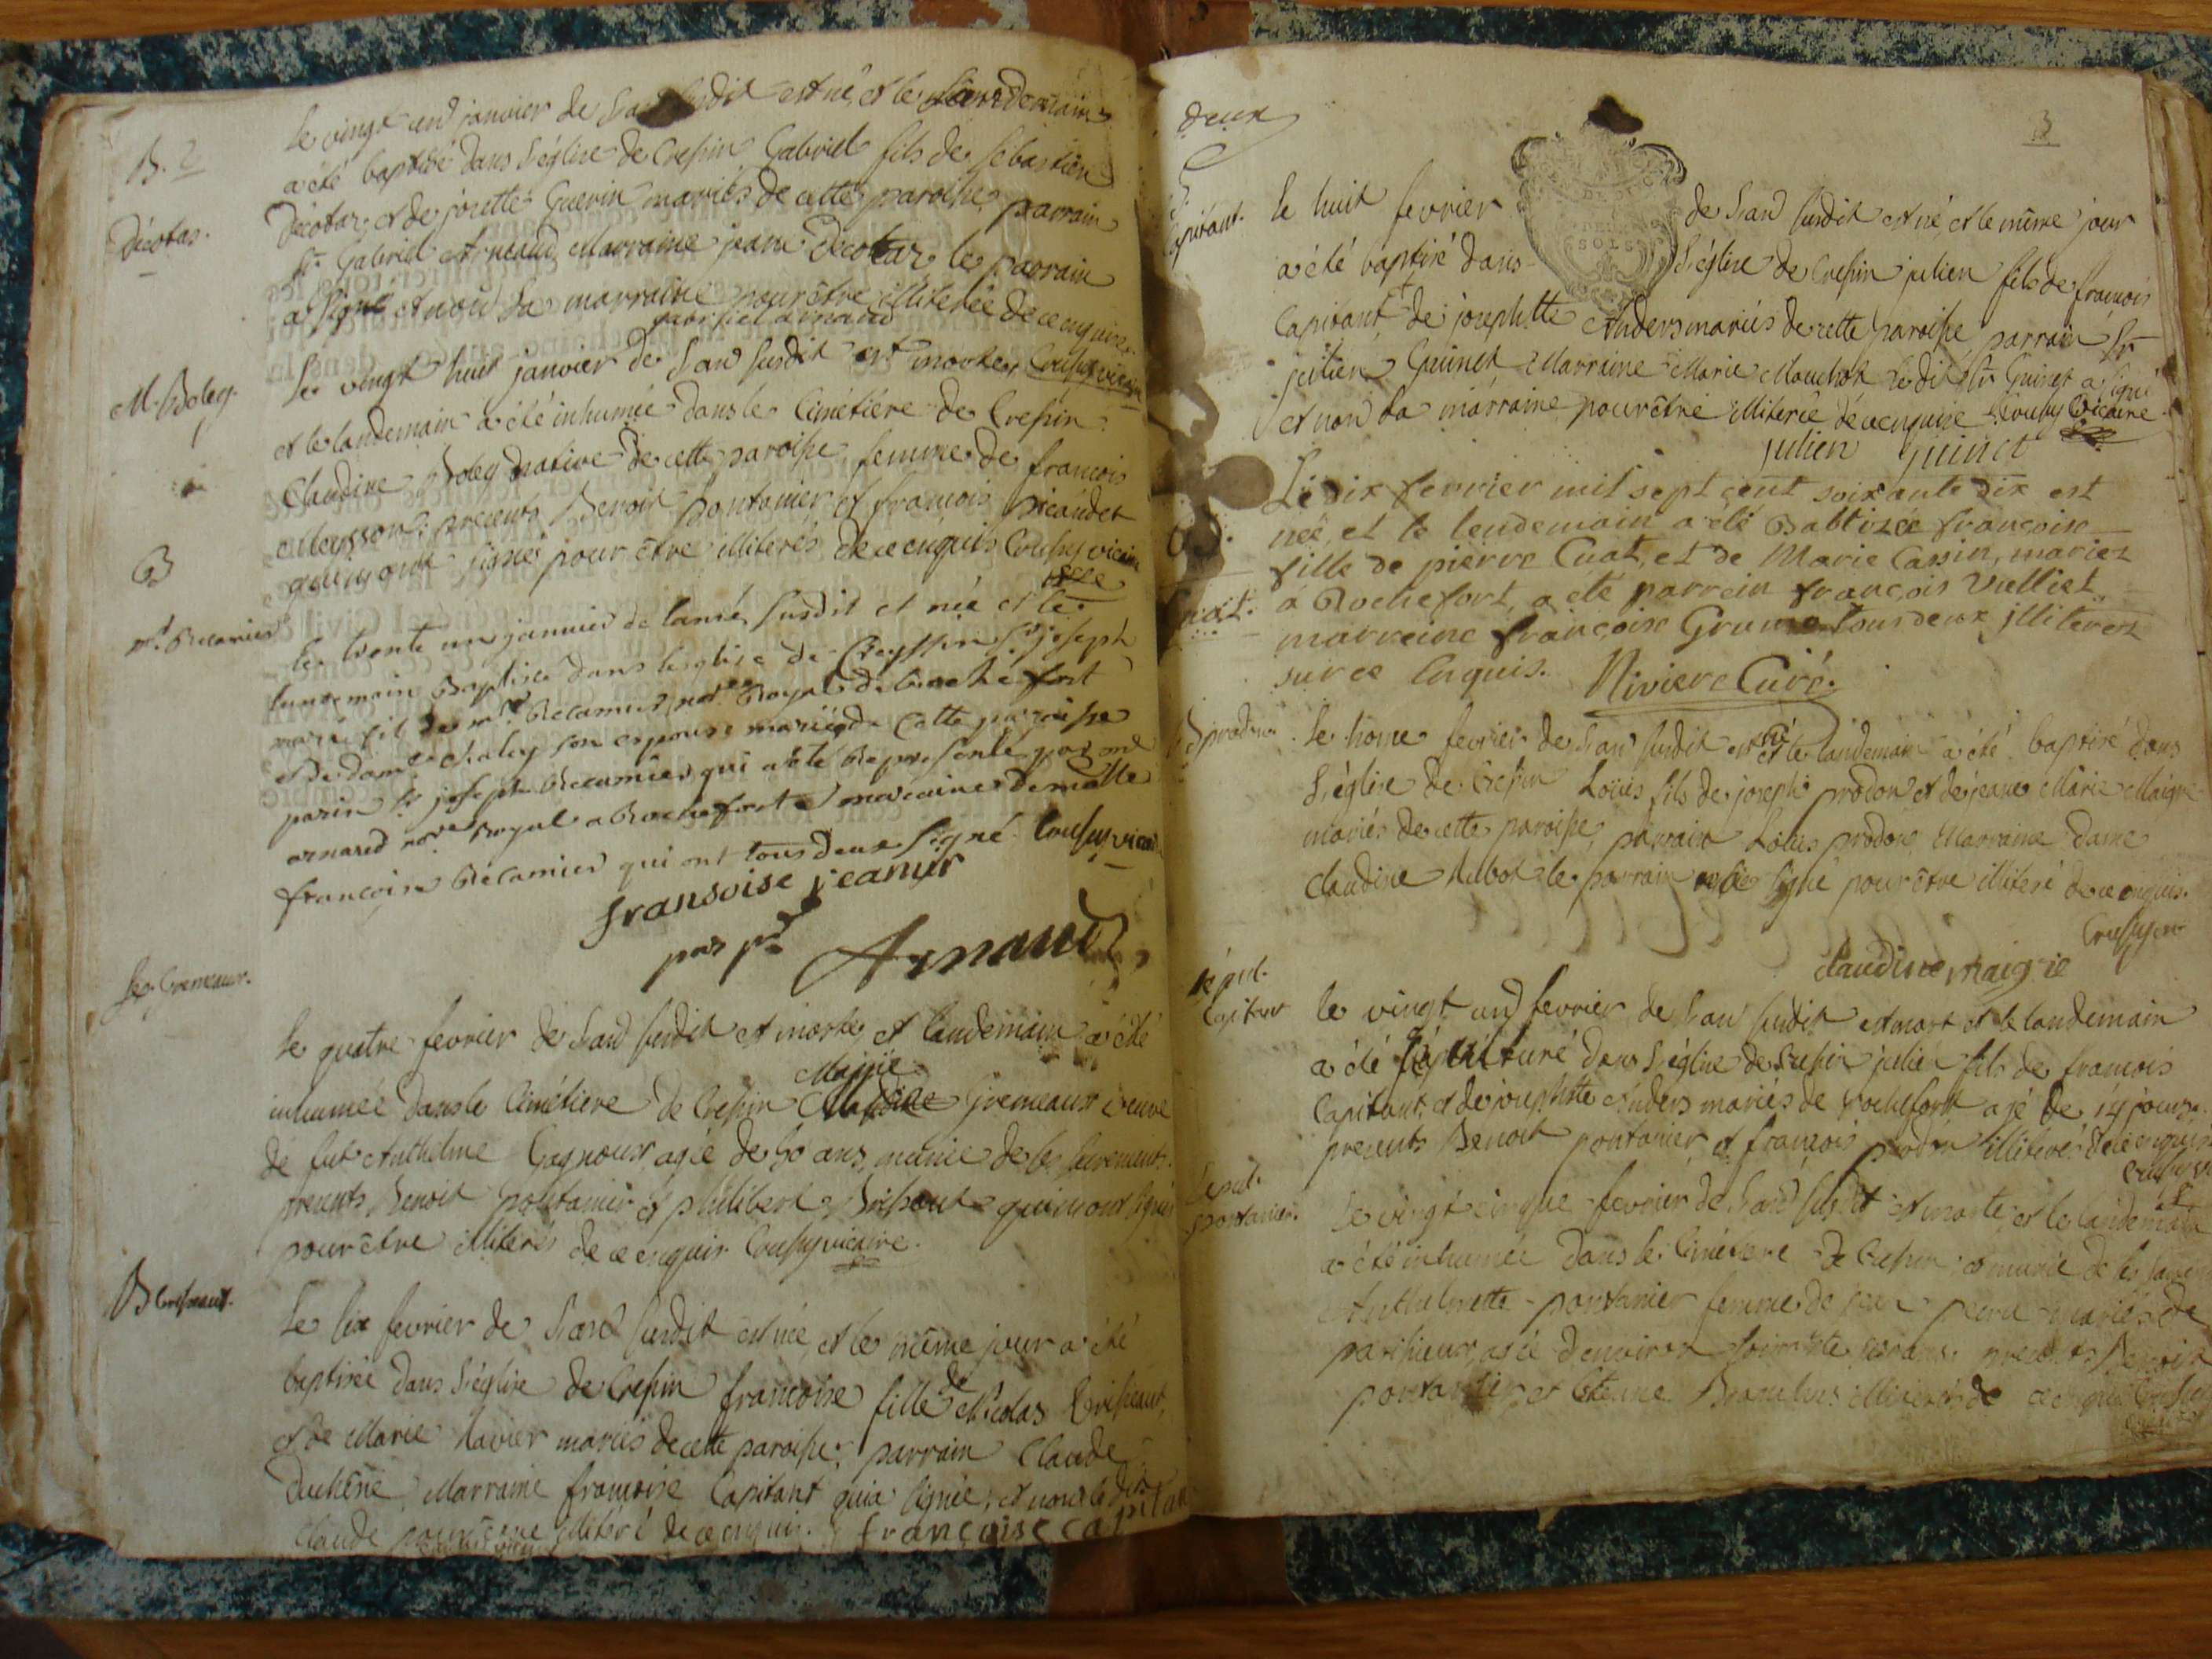 B. 2
Décotas.
Le vingt un janvier de l'an susdit est né, et le lendemain
a été baptisé dans l'église de Crepin Gabriel fils de sébastien
Décotaz et de josette Guerin mariés de cette paroisse, parrain
Sr. Gabriel Arneaud Marraine jeane Decotaz le parrain
a signé et non la marraine pour être illiterée de ce enquise
gabrisiel arnaud
Cousy vicaire
M. Boley.
Le vingt huit janvier de l'an susdit est morte,
et le landemain a été inhumée dans le Cimétiere de Crepin
Claudine Boley native de cette paroisse femme de francois
presents Benoit pontanier et francois picaudet
qui n'y ont signés pour être illiterés de ce enquis Cousy vicaire
B
mr. Recamier
le trente un janvier de lanné susdit et née et le
landemain Baptisé dans leglise de Creyssin Sr joseph
marie fil de mr. Recamier not.re Royal de Rochefort
et De dame Chaley son espouse mariés de Cette paroisse
parin sr joseph Recamier qui a été Represente par me
arnared no.re Royal a Rochefort marraine demlle
francoise Recamier qui ont tous deux signé. Cousy vicai
fransoise reamier
par pr
Arnaud
Se. Gremeaux.
Le quatre fevrier de l'an susdit est morte, et landemain a été
Marie
inhumée dans le Cimétiere de Crepin Gremeaux veuve
de fut Anthelme Gagnoux, agée de 50 ans, munie de les sacrements.
presents Benoit pontanier et philibert qui n'ont signés
pour être illiterés de ce enquis Cousy vicaire.
B Crispeaux.
Le six fevrier de l'an susdit est née, et le même jour a été
baptisée dans l'église de Crepin francoise fille de Nicolas Crispeaut,
et de Marie Navier mariés de cette paroisse. parrain Claude
Duchêne, Marraine francoise Capitant qui a signée, et non le dit
Claude pour être illiteré de ce enquis. francaise capitan
deux
3
B.
Capitant.
le huit fevrier de l'an susdit est né, et le même jour
DEUX SOLS
a été baptisé dans l'église de Crepin julien fils de francois
Capitant et de josephtte Anders mariés de cette paroisse parrain Sr
julien Guinet Marraine Marie Mouchot le dit Sr Guinet a signé
et non la marraine pour être illiterée de ce enquise Cousy Vicaire
julien guinet
B.
Cuat.
Le dix fevrier mil sept cent soixante dix est
née, et le lendemain a été Babtizée françoise
fille de pierre Cuat, et de Marie Cassin, mariez
a Rochefort, a été parrein françois Vulliet,
marreine françoise Grume tous deux jlliterez
sur ce Enquis. Riviere Curé.
B prodon.
le honze fevrier de l'an susdit est né et le landemain a été baptisé dans
l'église de Crepin Loüis fils de joseph prodon et de jeane Marie Maigre
mariés de cette paroisse, parrain Loüis prodon, Marraine dame
claudine le parrain signé pour être illiteré de ce enquis.
claudine maigre
Sépul.
Capitant
le vingt un fevrier de l'an susdit est mort et le landemain
a été sépulturé dans l'église de Crepin julien fils de francois
Capitant, et de josephtte Anders mariés de Rochefort agé de 14 jours.
presents Benoit pontanier et francois prodon illiterés de ce enquis
Sépul.
pontanier.
Le vingt cinque fevrier de l'an susdit est morte, et le landemain
a été inhumée dans le Cimétiere de Crepin et munie de les sacre
Anthelmette pontanier femme de jean mariés de
parissieux, agée d'environ soixante presents Benoit
pontanier et Etienne illiterés de ce enquis Cousy